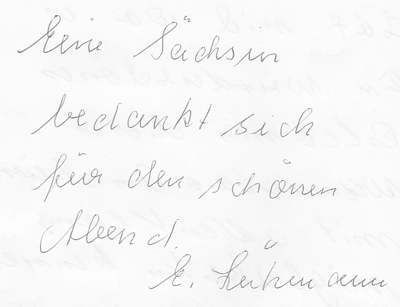 Eine Sächsin
bedankt sich
für den schönen
Abend.
E.